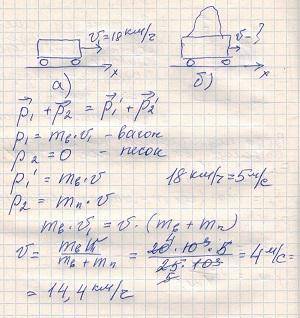 v=18км/ч
v-?
x
x
а)
б)
p⃗₁ + p⃗₂ = p⃗₁' + p⃗₂'
p₁ = mв·v₁ - вагон
p₂ = 0 - песок
p₁' = mв·v
18 км/ч = 5 м/с
p₂ = mп·v
mв·v₁ = v·(mв + mп)
v = mв v₁ / (mв + mп) = 20·10³·5 / 25·10³ = 4 м/с =
4
5
= 14,4 км/ч